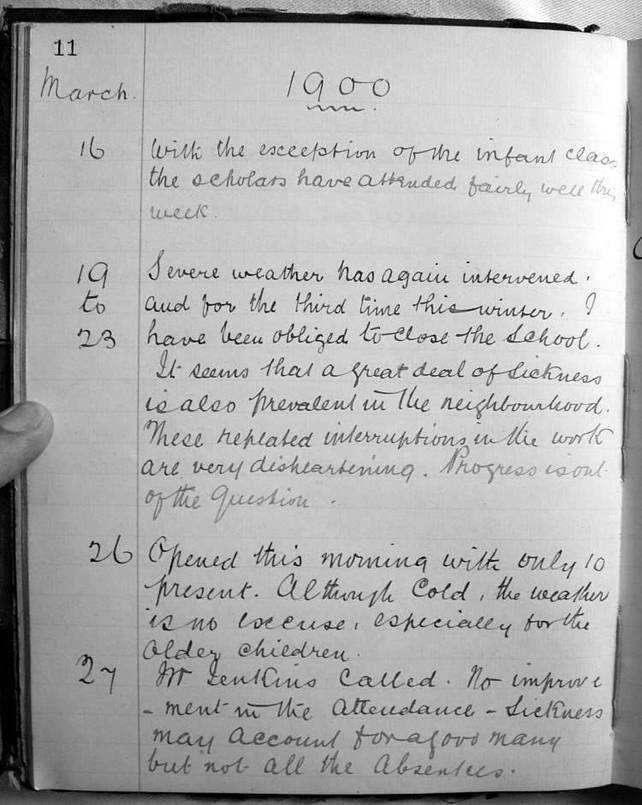 11
March. 1900
16 With the exception of the infant class
the scholars have attended fairly well this
week.
19 Severe weather has again intervened.
to and for the third time this winter, I
23 have been obliged to close the School.
It seems that a great deal of Sickness
is also prevalent in the neighbourhood.
These repeated interruptions in the work
are very disheartening. Progress is out
of the Question.
26 Opened this morning with only 10
present. Although Cold, the weather
is no excuse, especially for the
Older Children.
27 Mr Jenkins Called. No improve
-ment in the Attendance - Sickness
may Account for a good many
but not all the Absentees.